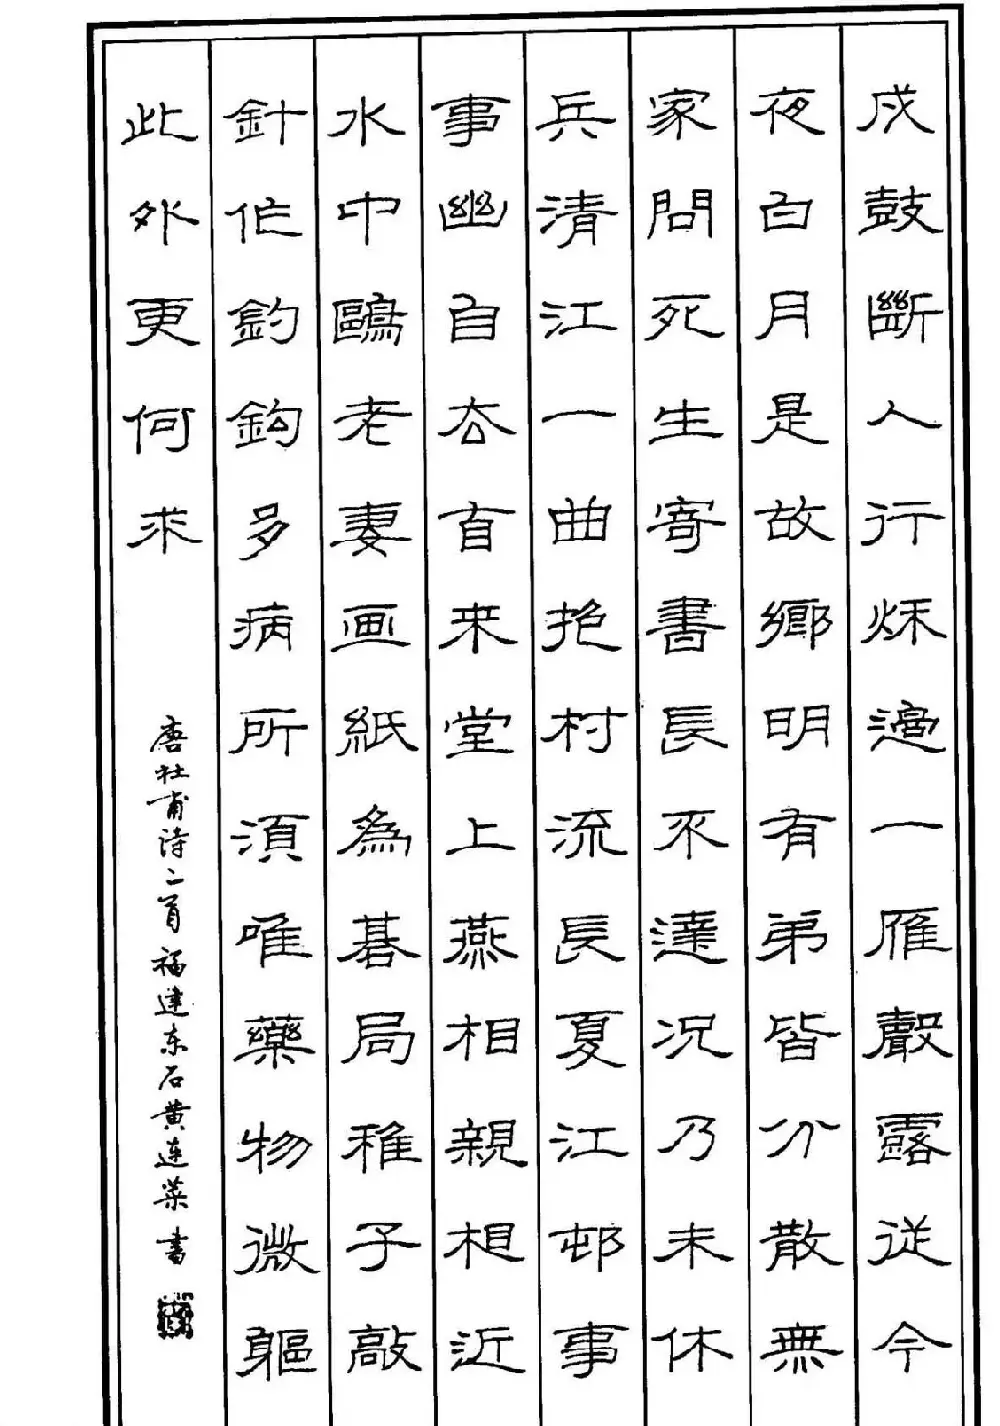 戍鼓斷人行秌邊一雁聲露従今
夜白月是故鄉明有弟皆分散無
家問死生寄書長不達况乃未休
兵清江一曲抱村流長夏江邨事
事幽自去自来堂上燕相親相近
水中鷗老妻画紙為碁局稚子敲
針作釣鈎多病所須唯藥物微軀
此外更何求
唐杜甫诗二首福建东石黄连書